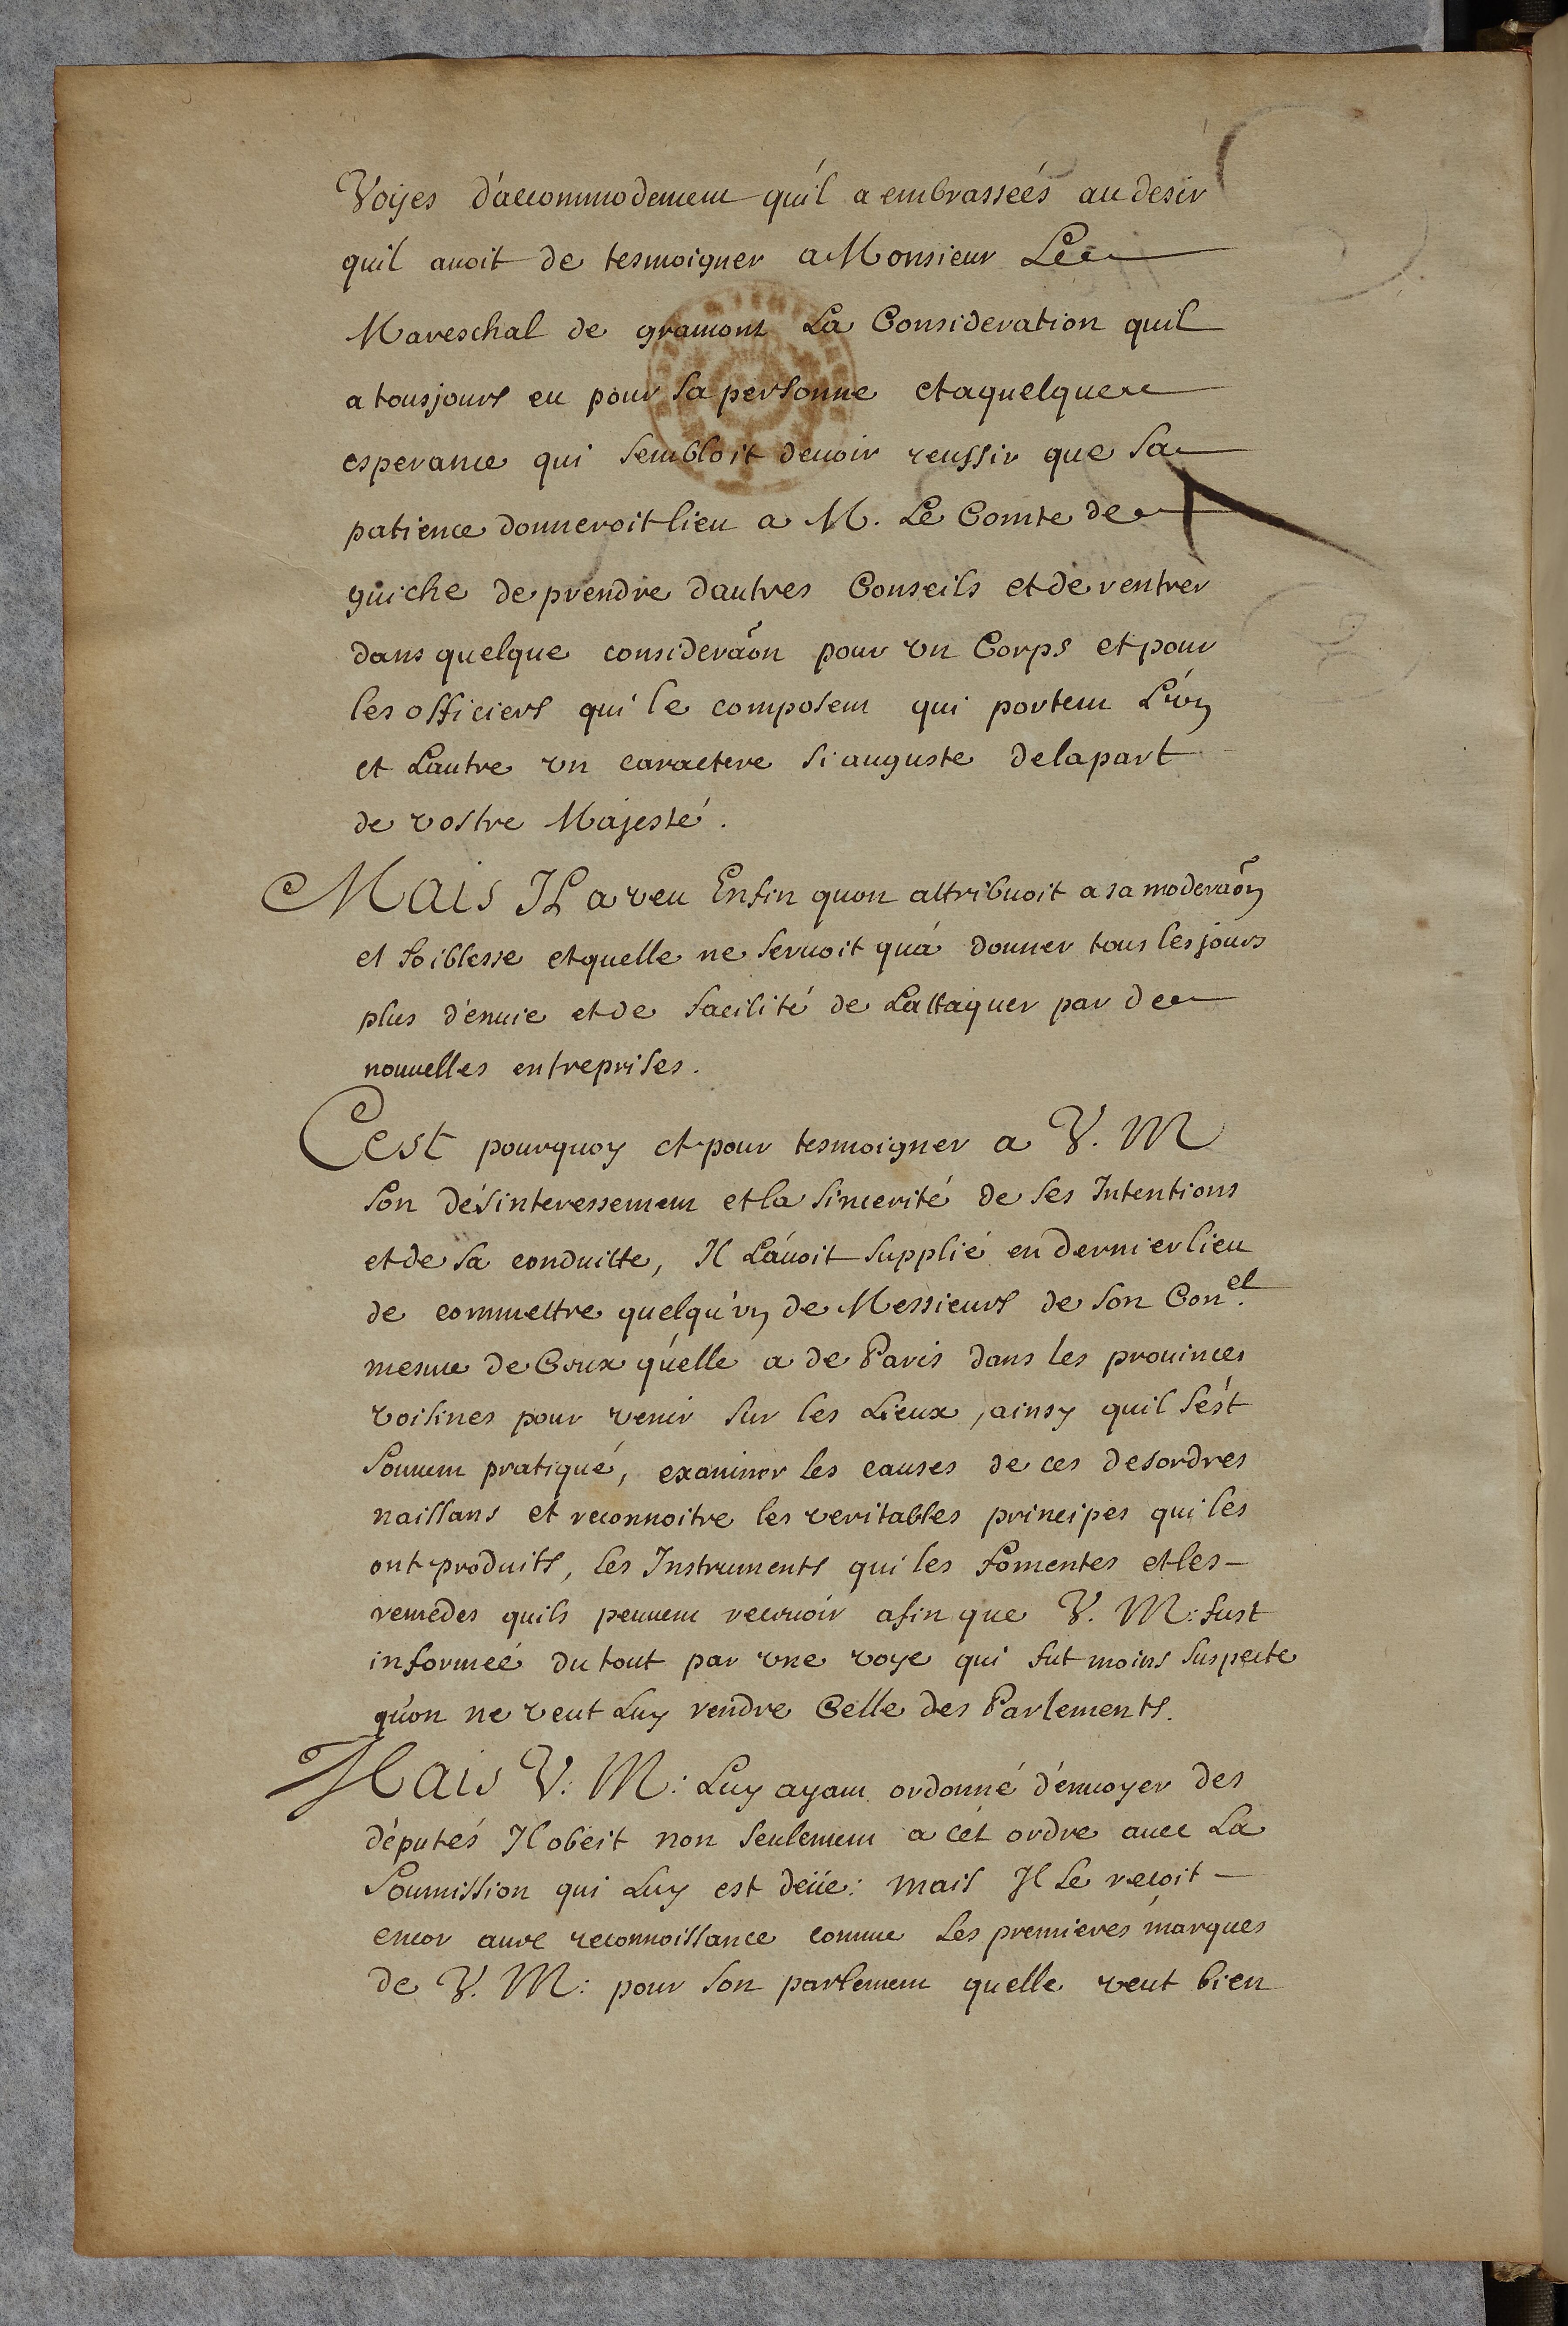 Voyes d'accommodement qu'il a embrasseés au desir
quil auoit de tesmoigner a Monsieur Le
Mareschal de gramont La Consideration quil
a tousjours eu pour sa personne et a quelque
esperance qui sembloit deuoir reussir que sa
patience donneroit lieu a M. Le Comte de
guiche de prendre dautres Conseils et de rentrer
dans quelque consideraõn pour vn Corps et pour
les officiers qui le composent qui portent L'vn
et Lautre vn caractere si auguste de la part
de vostre Majesté.
Mais Il a veu Enfin quon attribuoit a sa moderaõn
et foiblesse et quelle ne seruoit qu'a donner tous les jours
plus d'enuie et de facilité de Lattaquer par de
nouuelles entreprises.
Cest pourquoy et pour tesmoigner a V. M
son désinteressement et la sincerité de ses Intentions
et de sa conduitte, Il L'auoit supplié en dernier lieu
de commettre quelqu'vn de Messieurs de son Con.el
mesme de Ceux qu'elle a de Paris dans les prouinces
voisines pour venir sur les Lieux, ainsy quil s'est
souuent pratiqué, examiner les causes de ces desordres
naissans et reconnoitre les veritables principes qui les
ont produits, les Instruments qui les fomentes et les
remedes quils peuuent receuoir afin que V. M: fust
informeé du tout par vne voye qui fut moins suspecte
qu'on ne veut Luy rendre Celle des Parlements.
Mais V. M: Luy ayant ordonné d'enuoyer des
députés Il obeit non seulement a cét ordre auec La
soumission qui Luy est deüe: mais Il Le recoit
encor auec reconnoissance comme Les premieres marques
de V. M: pour son parlement quelle veut bien